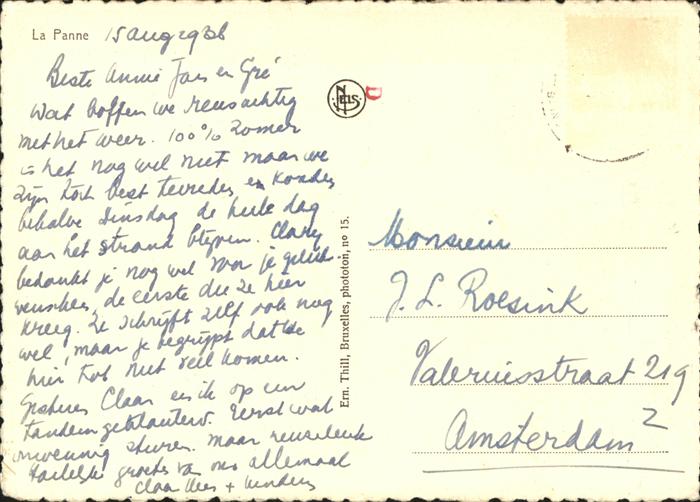 La Panne 15 aug 1936
Beste Annie Jan en Gré
Wat boffen we reusachtig
met het weer. 100% zomer
is het nog wel niet maar we
zijn toch best tevreden en konden
behalve Dinsdag de hele dag
aan het strand blijven. Clary
bedankt je nog wel voor je geluk-
wenschen, de eerste die ze hier
kreeg. Ze schrijft zelf ook nog
wel, maar je begrijpt dat we
hier tot niet veel komen.
Gisteren Claar en ik op een
tandem Eerst wat
onwennig sturen. Maar
Hartelijke groeten van ons allemaal
Claar + kinders
NELS
D
Ern. Thill, Bruxelles, phototoń, no 15.
Monsieur
J. L. Roesink
Valeriusstraat 219
Amsterdam Z